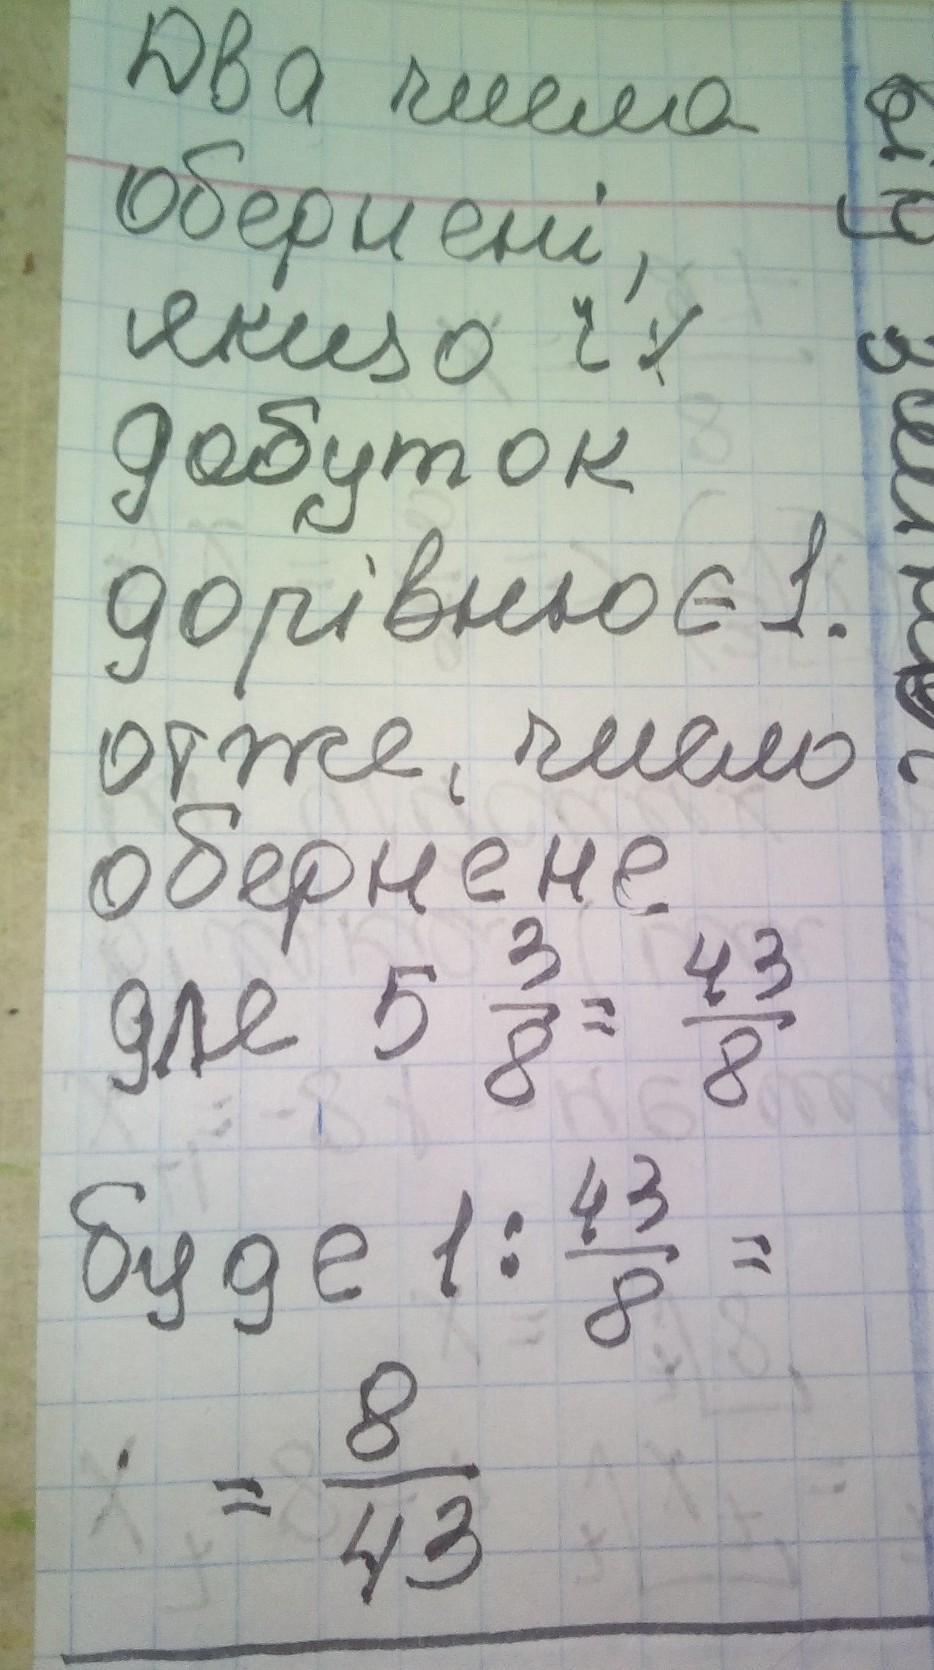 Два числа
обернені,
якщо їх
добуток
дорівнює 1.
отже, число
обернене
для 5 3/8 = 43/8
буде 1 : 43/8 =
= 8/43